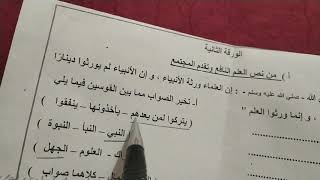 الورقة الثانية
أ ) من نص العلم النافع وتقدم المجتمع
الله - صلى الله عليه وسلم - : إن العلماء ورثة الأنبياء ، و إن الأنبياء لم يورثوا دينارًا
، و إنما ورثوا العلم "
أ- تخير الصواب مما بين القوسين فيما يلي
يتركوا لمن بعدهم – يأخذونها – ينفقوا )
النبي – النبأ – النبوة )
ك - العلوم – الجهل )
– كلاهما صواب